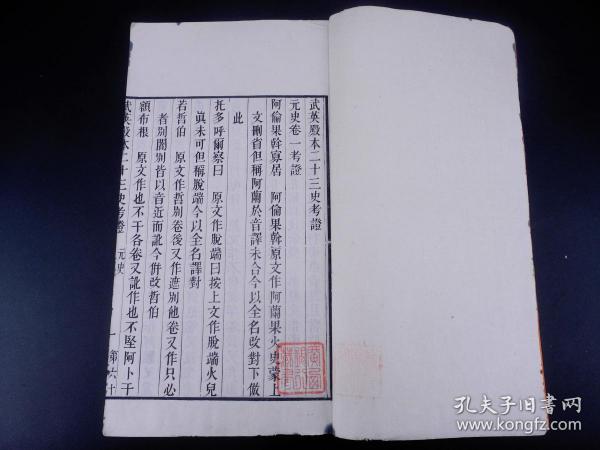 武英殿本二十三史考證
元史卷一考證
阿倫果斡寡居　阿倫果斡原文作阿蘭果火史蒙上
文刪省但稱阿蘭於音譯未合今以全名改對下倣
此
托多呼爾察曰　原文作脫端曰按上文作脫端火兒
眞未可但稱脫端今以全名譯對
若哲伯　原文作哲別卷後又作遮別他卷又作只必
者別闍別皆以音近而訛今併改哲伯
額布根　原文作也不干各卷又訛作也不堅阿卜干
武英殿本二十三史考證　元史　一　第六十
孔夫子旧书网
www.kongfz.com